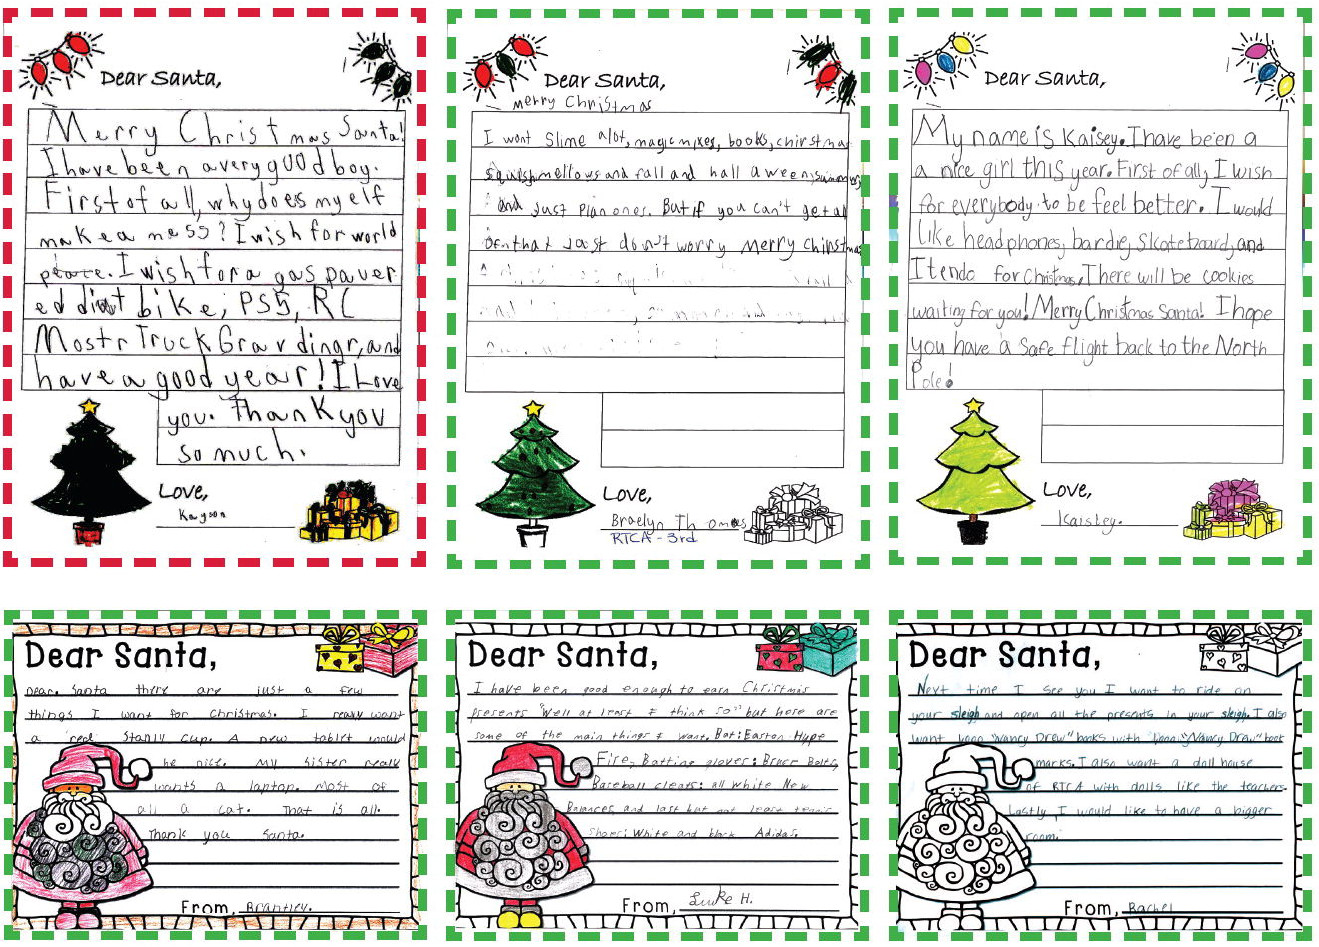 Dear Santa,
Merry Christmas Santa!
I have been a very good boy.
First of all, why does my elf
make a mess? I wish for world
peace. I wish for a gas paver
ed diut bike, PS5, RC
Mostr Truck Grav dingr, and
have a good year! I Love
you. Thank you
so much.
Love,
Kayson
Dear Santa,
merry Christmas
I wont Slime alot, magic mixes, books, chirstmas
Squishmellows and fall and hall a ween, summer,
and just plan ones. But if you can't get all
of that Jast don't worry merry chirstmas
Love,
Braelyn Thomas
RTCA - 3rd
Dear Santa,
My name is Kaisey. I have been a
a nice girl this year. First of all, I wish
for everybody to be feel better. I would
like headphones, bardie, Skateboard, and
Itendo for Christmas. There will be cookies
waiting for you! Merry Christmas Santa! I hope
you have a safe flight back to the North
Pole!
Love,
Kaisley.
Dear Santa,
Dear. Santa there are just a few
things I want for christmas. I really want
a real Stanly cup. A new tablet would
be nice. My sister really
wants a laptop. Most of
all a cat. That is all.
Thank you Santa.
From, Brantley.
Dear Santa,
I have been good enough to earn Christmis
presents "Well at least I think so" but here are
some of the main things I want. Bat: Easton Hype
Fire, Batting glover: Bruce Bolts,
Baseball cleats: all White New
Balances, and last but not least tennis
shoes: White and black Adidas.
From, Luke H.
Dear Santa,
Next time I see you I want to ride on
your sleigh and open all the presents in your sleigh. I also
want "Nancy Drew" books with "Nancy Drew" book
marks. I also want a doll house
of RTCA with dolls like the teachers
Lastly, I would like to have a bigger
room.
From, Rachel